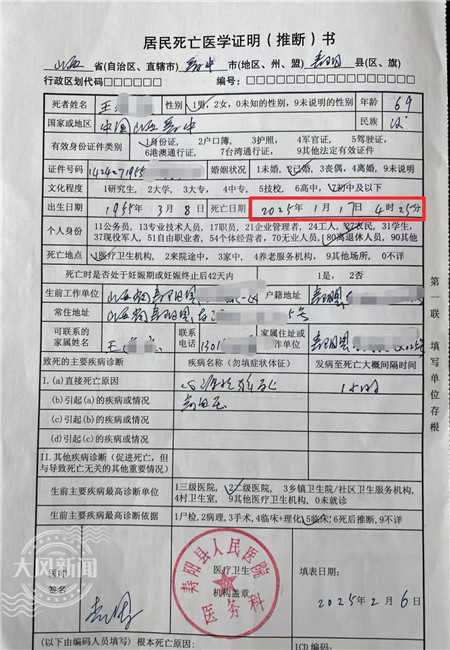 居民死亡医学证明（推断）书
山西 省(自治区、直辖市) 晋中 市(地区、州、盟) 寿阳 县(区、旗)
行政区划代码□□□□□□ 编号：□□□□□□□□□□□□
死者姓名 王 性别 1男, 2女, 0未知的性别, 9未说明的性别 年龄 69
国家或地区 中国山西晋中 民族 汉
有效身份证件类别 1身份证, 2户口簿, 3护照, 4军官证, 5驾驶证,
6港澳通行证, 7台湾通行证, 9其他法定有效证件
证件号码 1424271955 婚姻状况 1未婚, 2已婚, 3丧偶, 4离婚, 9未说明
文化程度 1研究生, 2大学, 3大专, 4中专, 5技校, 6高中, 7初中及以下
出生日期 1955年 3月 8日 死亡日期 2025年 1月 17日 4时 25分
个人身份 11公务员, 13专业技术人员, 17职员, 21企业管理者, 24工人, 27农民, 31学生,
37现役军人, 51自由职业者, 54个体经营者, 70无业人员, 80离退休人员, 90其他
死亡地点 1医疗卫生机构, 2来院途中, 3家中, 4养老服务机构, 9其他场所, 0不详
死亡时是否处于妊娠期或妊娠终止后42天内 1是, 2否
生前工作单位 山西省寿阳县 户籍地址 寿阳县
常住地址 山西省寿阳县 5号
可联系的家属姓名 王 联系电话 1301 家属住址或工作单位 寿阳县
致死的主要疾病诊断 疾病名称（勿填症状体征） 发病至死亡大概间隔时间
I. (a) 直接死亡原因 心源性猝死
(b) 引起(a)的疾病或情况
(c) 引起(b)的疾病或情况
(d) 引起(c)的疾病或情况
II. 其他疾病诊断（促进死亡，但
与导致死亡无关的其他重要情况）
生前主要疾病最高诊断单位 1三级医院, 2二级医院, 3乡镇卫生院/社区卫生服务机构,
4村卫生室, 9其他医疗卫生机构, 0未就诊
生前主要疾病最高诊断依据 1尸检, 2病理, 3手术, 4临床+理化, 5临床, 6死后推断, 9不详
大风新闻
签名
医疗卫生
机构盖章
寿阳县人民医院
医务科
填表日期：
2025年2月6日
（以下由编码人员填写）根本死亡原因： ICD编码：
第一联 填写单位存根